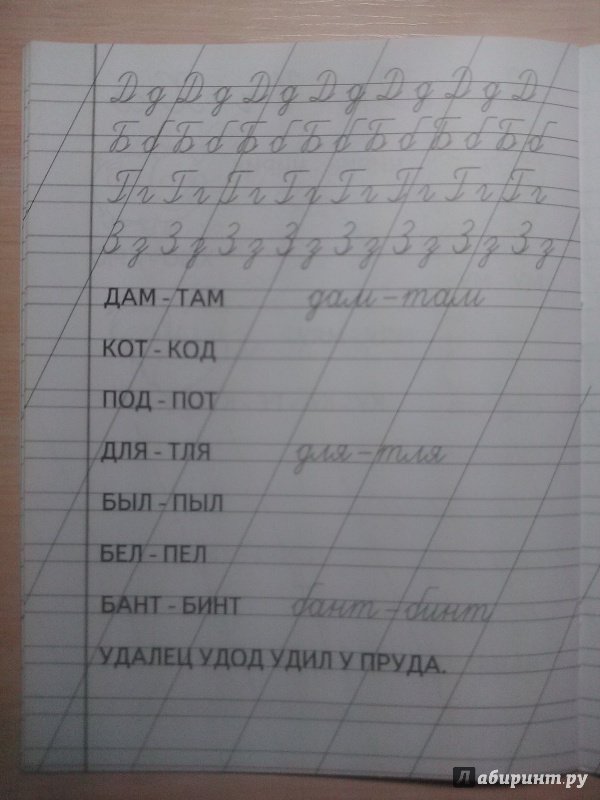 Д д Д д Д д Д д Д д Д д Д
Б б Б б Б б Б б Б б Б б Б б
Г г Г г Г г Г г Г г Г г Г г Г г
З з З з З з З з З з З з З з З з
ДАМ - ТАМ дам – там
КОТ - КОД
ПОД - ПОТ
ДЛЯ - ТЛЯ для – тля
БЫЛ - ПЫЛ
БЕЛ - ПЕЛ
БАНТ - БИНТ бант – бинт
УДАЛЕЦ УДОД УДИЛ У ПРУДА.
Лабиринт.ру